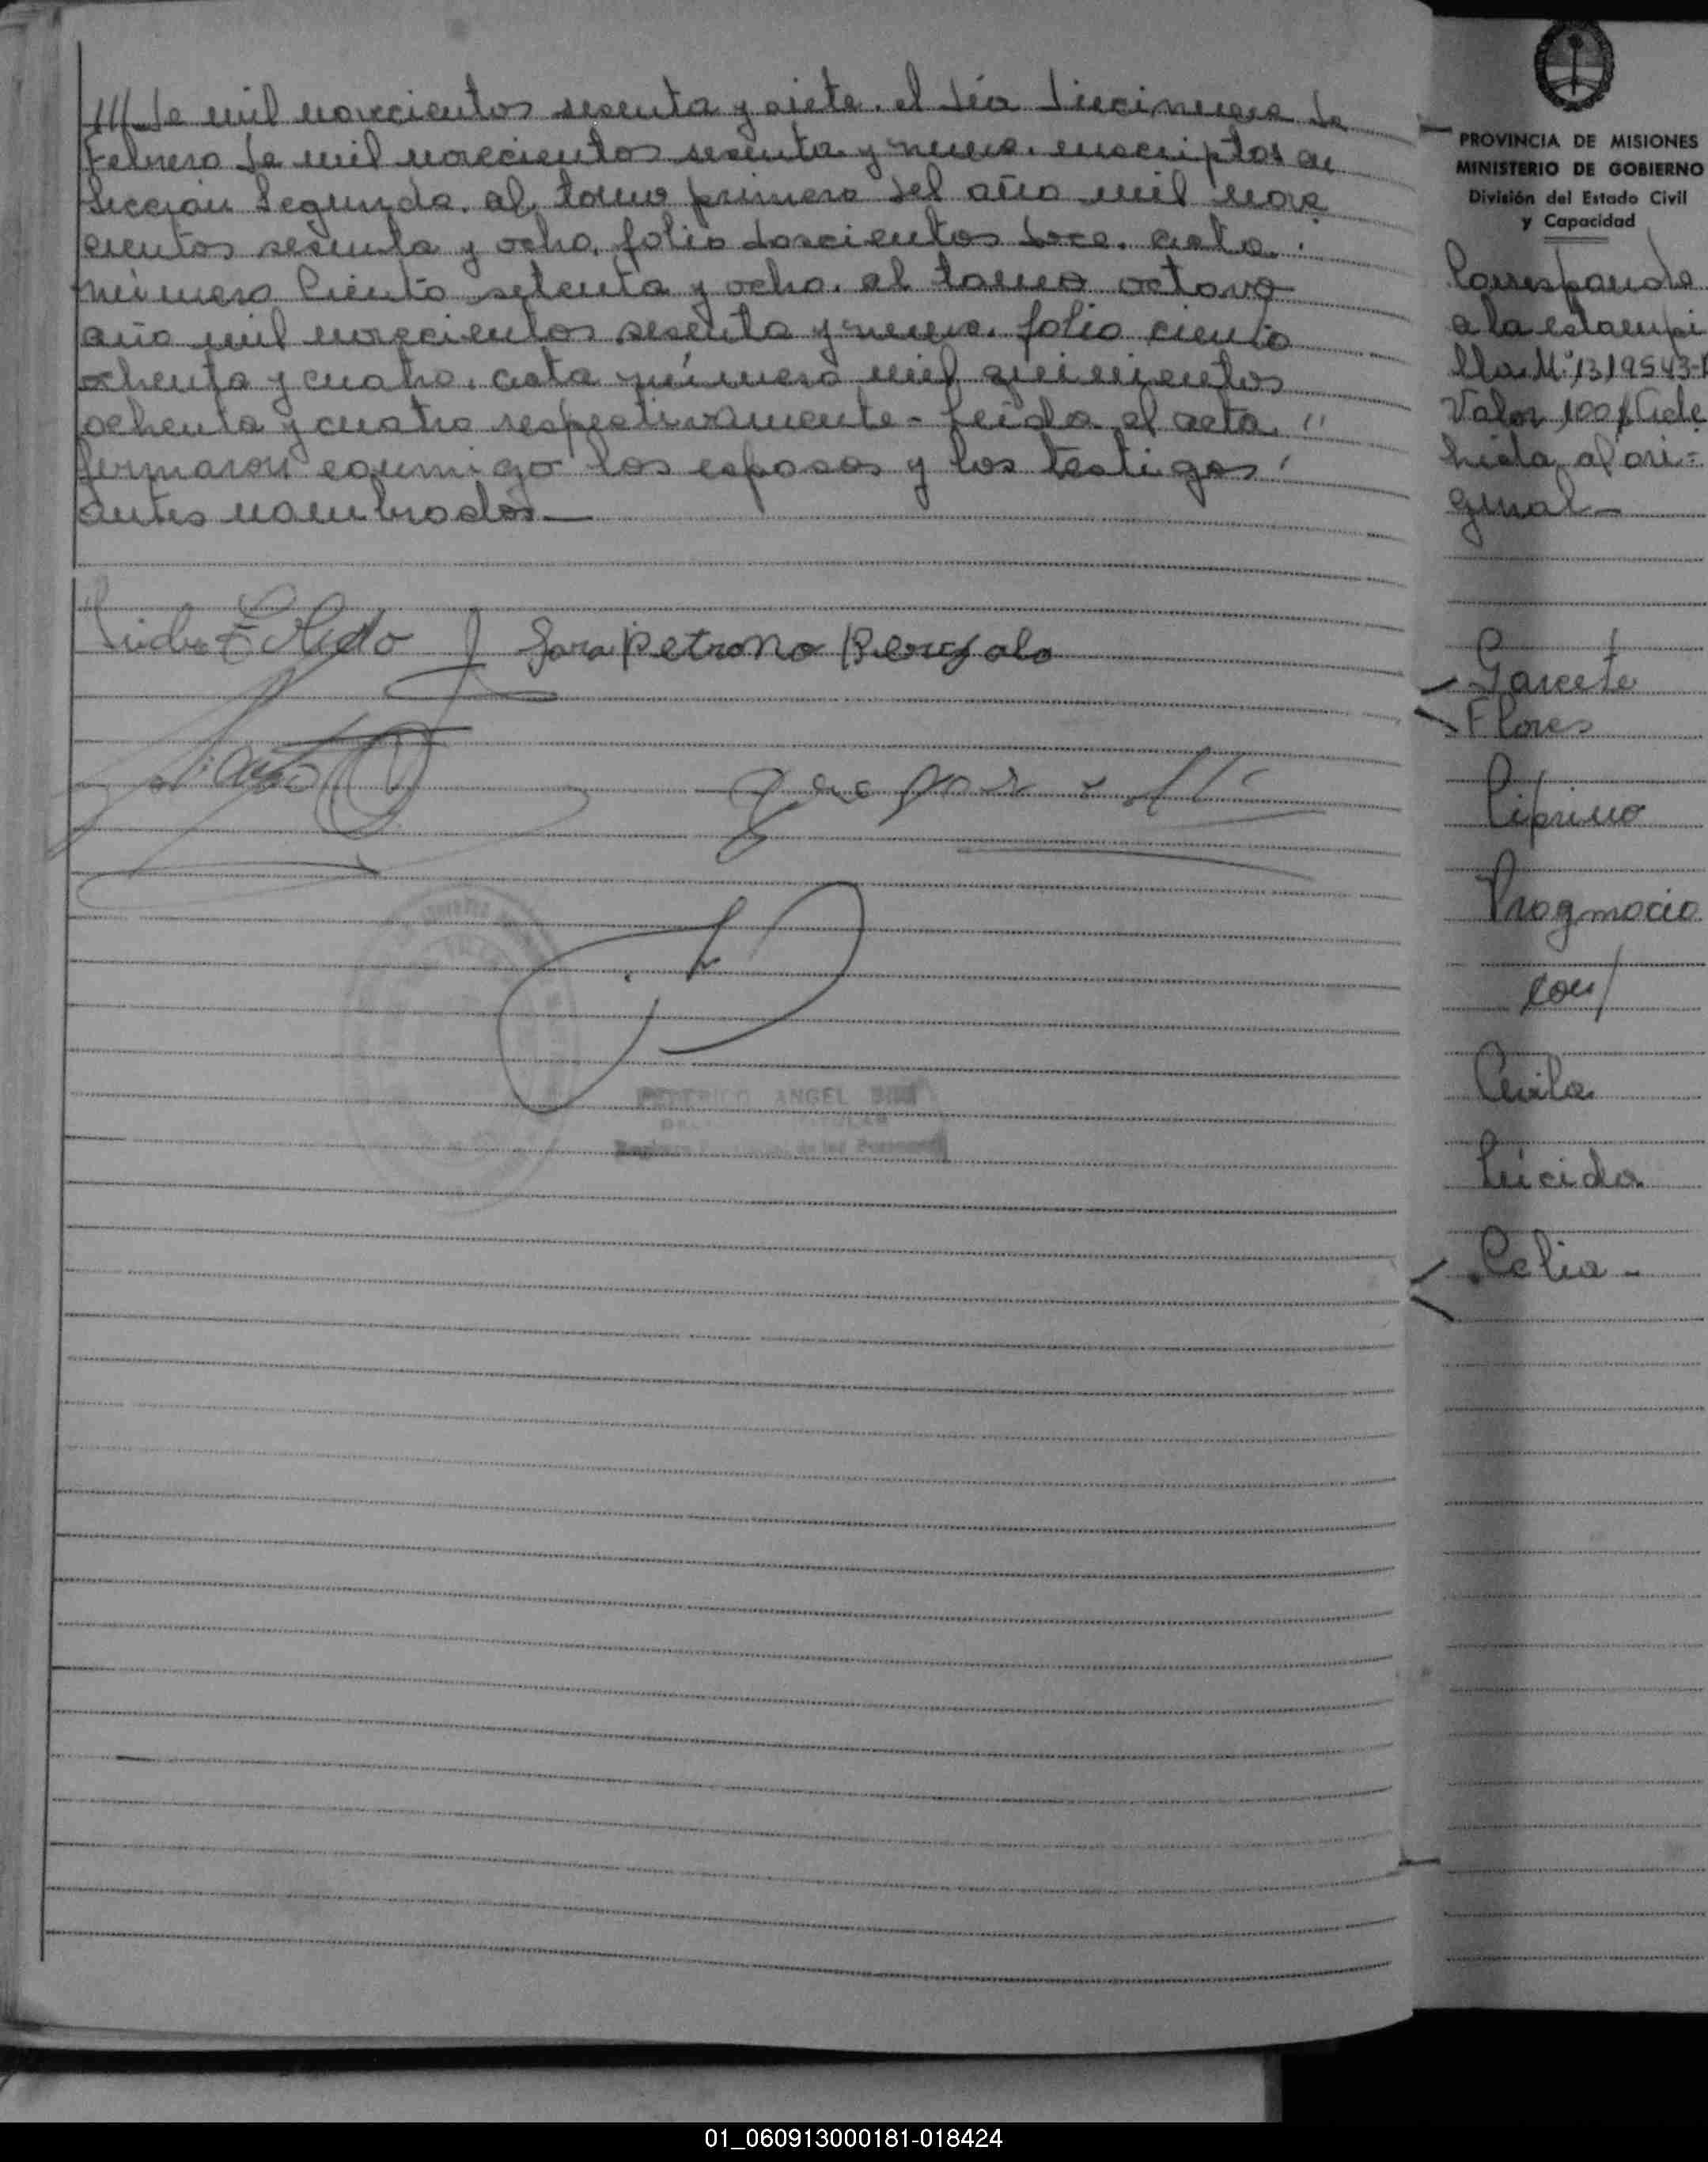 /// de mil novecientos sesenta y siete. el día diecinueve de
Febrero de mil novecientos sesenta y nueve. inscriptos en
Sección Segunda. al tomo primero del año mil nove
cientos sesenta y ocho, folio doscientos doce. acta
número Ciento setenta y ocho. al tomo octavo
año mil novecientos sesenta y nueve. folio ciento
ochenta y cuatro. acta número mil quinientos
ochenta y cuatro respectivamente - Leída el acta. "
firmaron conmigo los esposos y los testigos
antes nombrados.—
Sara Petrona
FEDERICO ANGEL
de las Personas
PROVINCIA DE MISIONES
MINISTERIO DE GOBIERNO
División del Estado Civil
y Capacidad
Corresponde
a la estampi
lla Nº 1319543-
Valor 100 $ Ade
hida al ori=
ginal-
Garcete
Flores
Ciprino
Pragmacio
con/
Avila
Lúcida
Celia -
01_060913000181-018424